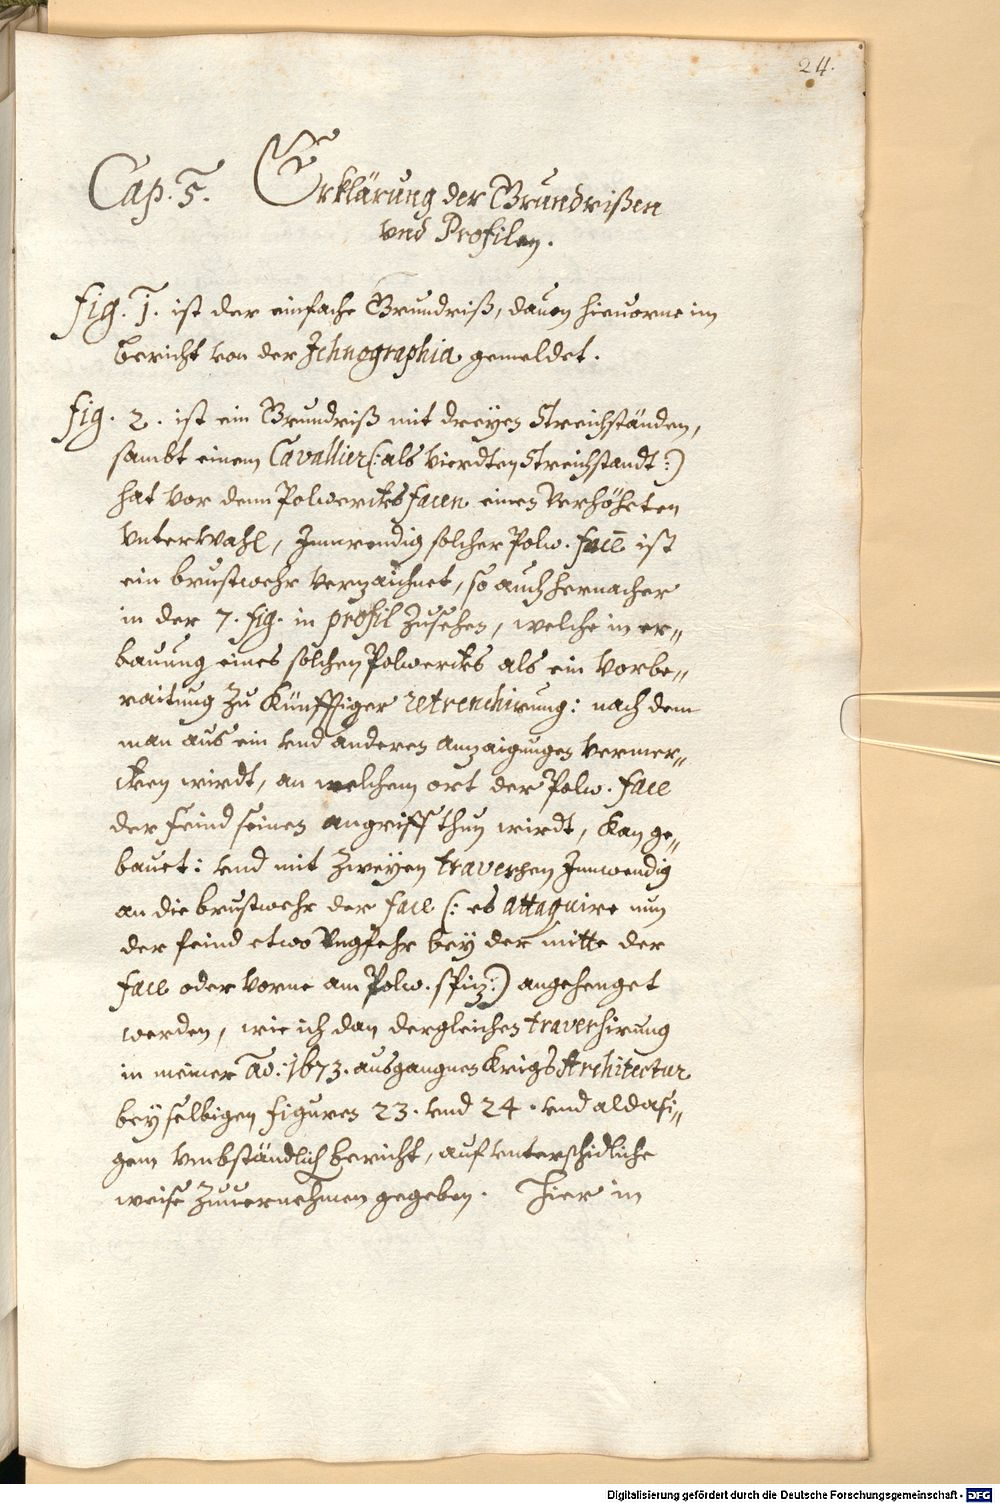 24.
Cap. 5. Erklärung der Grundrißen
vnd Profilen.
fig. 1. ist der einfache Grundriß, dauon hieuorne im
bericht von der Ichnographia gemeldet.
fig. 2. ist ein Grundriß mit dreyen Streichständen,
sambt einem Cavallier (: als vierdten Streichstandt :)
hat vor denn Polwercks facen einen Verhöheten
vnterwahl, Innwendig solcher Polw. facē ist
ein brustwehr verzaichnet, so auch hernacher
in der 7. fig. in profil Zusehen, welche in er„
bauung eines solchen Polwercks als ein vorbe„
raitung Zu Künfftiger retrenchirung: nach dem
man aus ein vnd anderen anzaigungen vermer„
cken wirdt, an welchem ort der Polw. face
der feind seinen angriff thun wirdt, Kan ge„
bauet: vnd mit Zweyen traversen Innwendig
an die brustwehr der face (: es attaquire nun
der feind etwo Vngfehr bey der mitte der
face oder vorne am Polw. spitz :) angehenget
werden, wie ich dan dergleichen traversirung
in meiner Aō: 1673. ausgangnen Krigs Architectur
bey selbigen figuren 23. vnd 24. vnd aldasi„
gem vmbständlich bericht, auf vnterschidliche
weise Zuuernehmen gegeben. Hier in
Digitalisierung gefördert durch die Deutsche Forschungsgemeinschaft - DFG